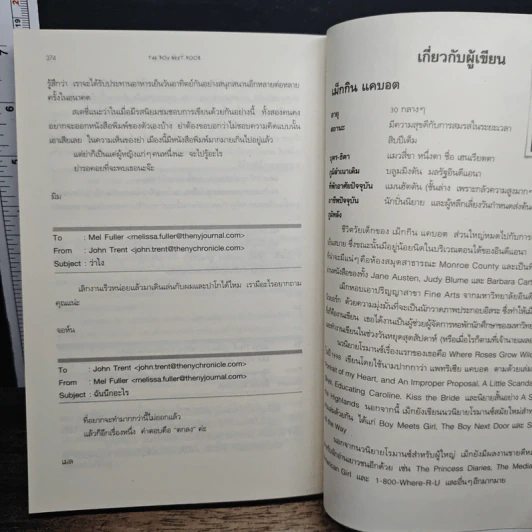 274
THE BOY NEXT DOOR
รู้สึกว่า เราจะได้รับประทานอาหารเย็นวันอาทิตย์กันอย่างสนุกสนานอีกหลายต่อหลาย
ครั้งในอนาคต
สเตซี่แนะว่าในเมื่อมีรสนิยมชมชอบการเขียนด้วยกันอย่างนี้ ทั้งสองคนคง
อยากจะออกหนังสือพิมพ์ของตัวเองบ้าง ย่าต้องขอบอกว่าไม่ชอบความคิดแบบนั้น
เอาเสียเลย ในความเห็นของย่า เมืองนี้มีหนังสือพิมพ์มากมายเกินไปอยู่แล้ว
แต่ย่าก็เป็นแค่ผู้หญิงแก่ๆคนหนึ่งนะ จะไปรู้อะไร
ย่ารอคอยที่จะพบเธอนะจ๊ะ
มิม
To : Mel Fuller <melissa.fuller@thenyjournal.com>
From : John Trent <john.trent@thenychronicle.com>
Subject : ว่าไง
เลิกงานเร็วหน่อยแล้วมาเดินเล่นกับผมและปาโกได้ไหม เรามีอะไรอยากถาม
คุณแน่ะ
จอห์น
To : John Trent <john.trent@thenychronicle.com>
From : Mel Fuller <melissa.fuller@thenyjournal.com>
Subject : ฉันนึกอะไร
ที่อยากจะทำมากกว่านี้ไม่ออกแล้ว
แล้วก็อีกเรื่องหนึ่ง คำตอบคือ "ตกลง" ค่ะ
เมล
เกี่ยวกับผู้เขียน
เม็กกิน แคบอต
อายุ 30 กลางๆ
สถานะ มีความสุขดีกับการสมรสในระยะเวลา
สิบปีเต็ม
บุตร-ธิดา แมวสีขา หนึ่งตา ชื่อ เฮนเรียตตา
ภูมิลำเนาเดิม บลูมมิงตัน มลรัฐอินดีแอนา
ที่พักอาศัยปัจจุบัน แมนฮัตตัน (ชั้นล่าง เพราะกลัวความสูงมาก
อาชีพปัจจุบัน นักปั่นนิยาย และผู้หลีกเลี่ยงวันกำหนดส่งต้น
ภูมิหลัง
ชีวิตวัยเด็กของ เม็กกิน แคบอต ส่วนใหญ่หมดไปกับการ
ซึ่งขณะนั้นมีอยู่น้อยนิดในบริเวณตอนใต้ของอินดีแอนา
คือห้องสมุดสาธารณะ Monroe County และเป็นที่
งานหนังสือของทั้ง Jane Austen, Judy Blume และ Barbara Cart
เม็กหอบเอาปริญญาสาขา Fine Arts จากมหาวิทยาลัยอินดี
ด้วยความมุ่งมั่นที่จะเป็นนักวาดภาพประกอบอิสระ ซึ่งทำให้เม็
เธอได้งานเป็นผู้ช่วยผู้จัดการหอพักนักศึกษาของมหาวิท
ในช่วงวันหยุดสุดสัปดาห์ (หรือเมื่อไรก็ตามที่เจ้านายเผลอ
นวนิยายโรมานซ์เรื่องแรกของเธอคือ Where Roses Grow Wild
เขียนโดยใช้นามปากกาว่า แพทริเซีย แคบอต ตามด้วยเล่ม
of my Heart, and An Improper Proposal, A Little Scanda
Educating Caroline, Kiss the Bride และนิยายสั้นอย่าง A S
Highlands นอกจากนี้ เม็กยังเขียนนวนิยายโรมานซ์สมัยใหม่สำห
ได้แก่ Boy Meets Girl, The Boy Next Door และ S
the Way
นอกจากนวนิยายโรมานซ์สำหรับผู้ใหญ่ เม็กยังมีผลงานขายดีห
อ่านเยาวชนอีกด้วย เช่น The Princess Diaries, The Media
American Girl และ 1-800-Where-R-U และอื่นๆอีกมากมาย